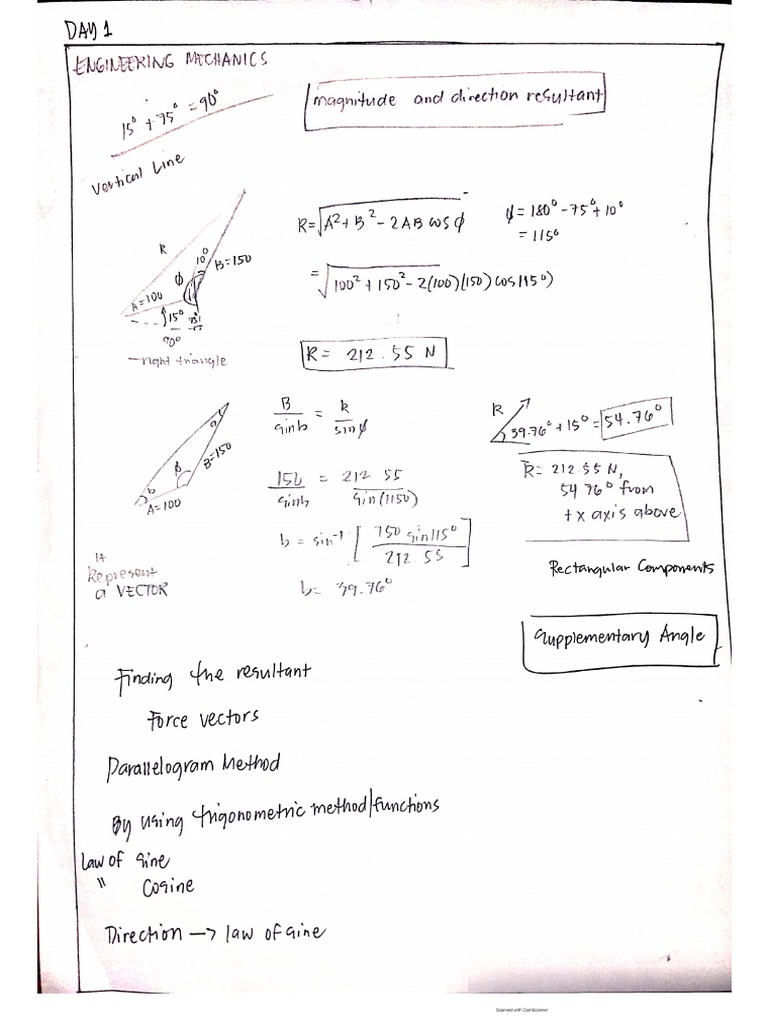 DAY 1
ENGINEERING MECHANICS
15° + 75° = 90°
Vertical Line
magnitude and direction resultant
R
10°
B=150
ϕ
A=100
15°
90°
right triangle
R=√A²+B²-2AB cos ϕ
=√100²+150²-2(100)(150)cos(115°)
R= 212.55 N
ϕ=180°-75°+10°
=115°
a
B=150
b
A=100
B/sin b = R/sin ϕ
150/sin b = 212.55/sin(115°)
b = sin⁻¹ [150 sin 115°/212.55]
b= 39.76°
R
39.76°+15°=54.76°
R= 212.55N,
54.76° from
+x axis above
It
Represent
a VECTOR
Rectangular Components
Supplementary Angle
Finding the resultant
Force vectors
Parallelogram Method
By using trigonometric method/functions
Law of sine
" Cosine
Direction → law of sine
Scanned with CamScanner